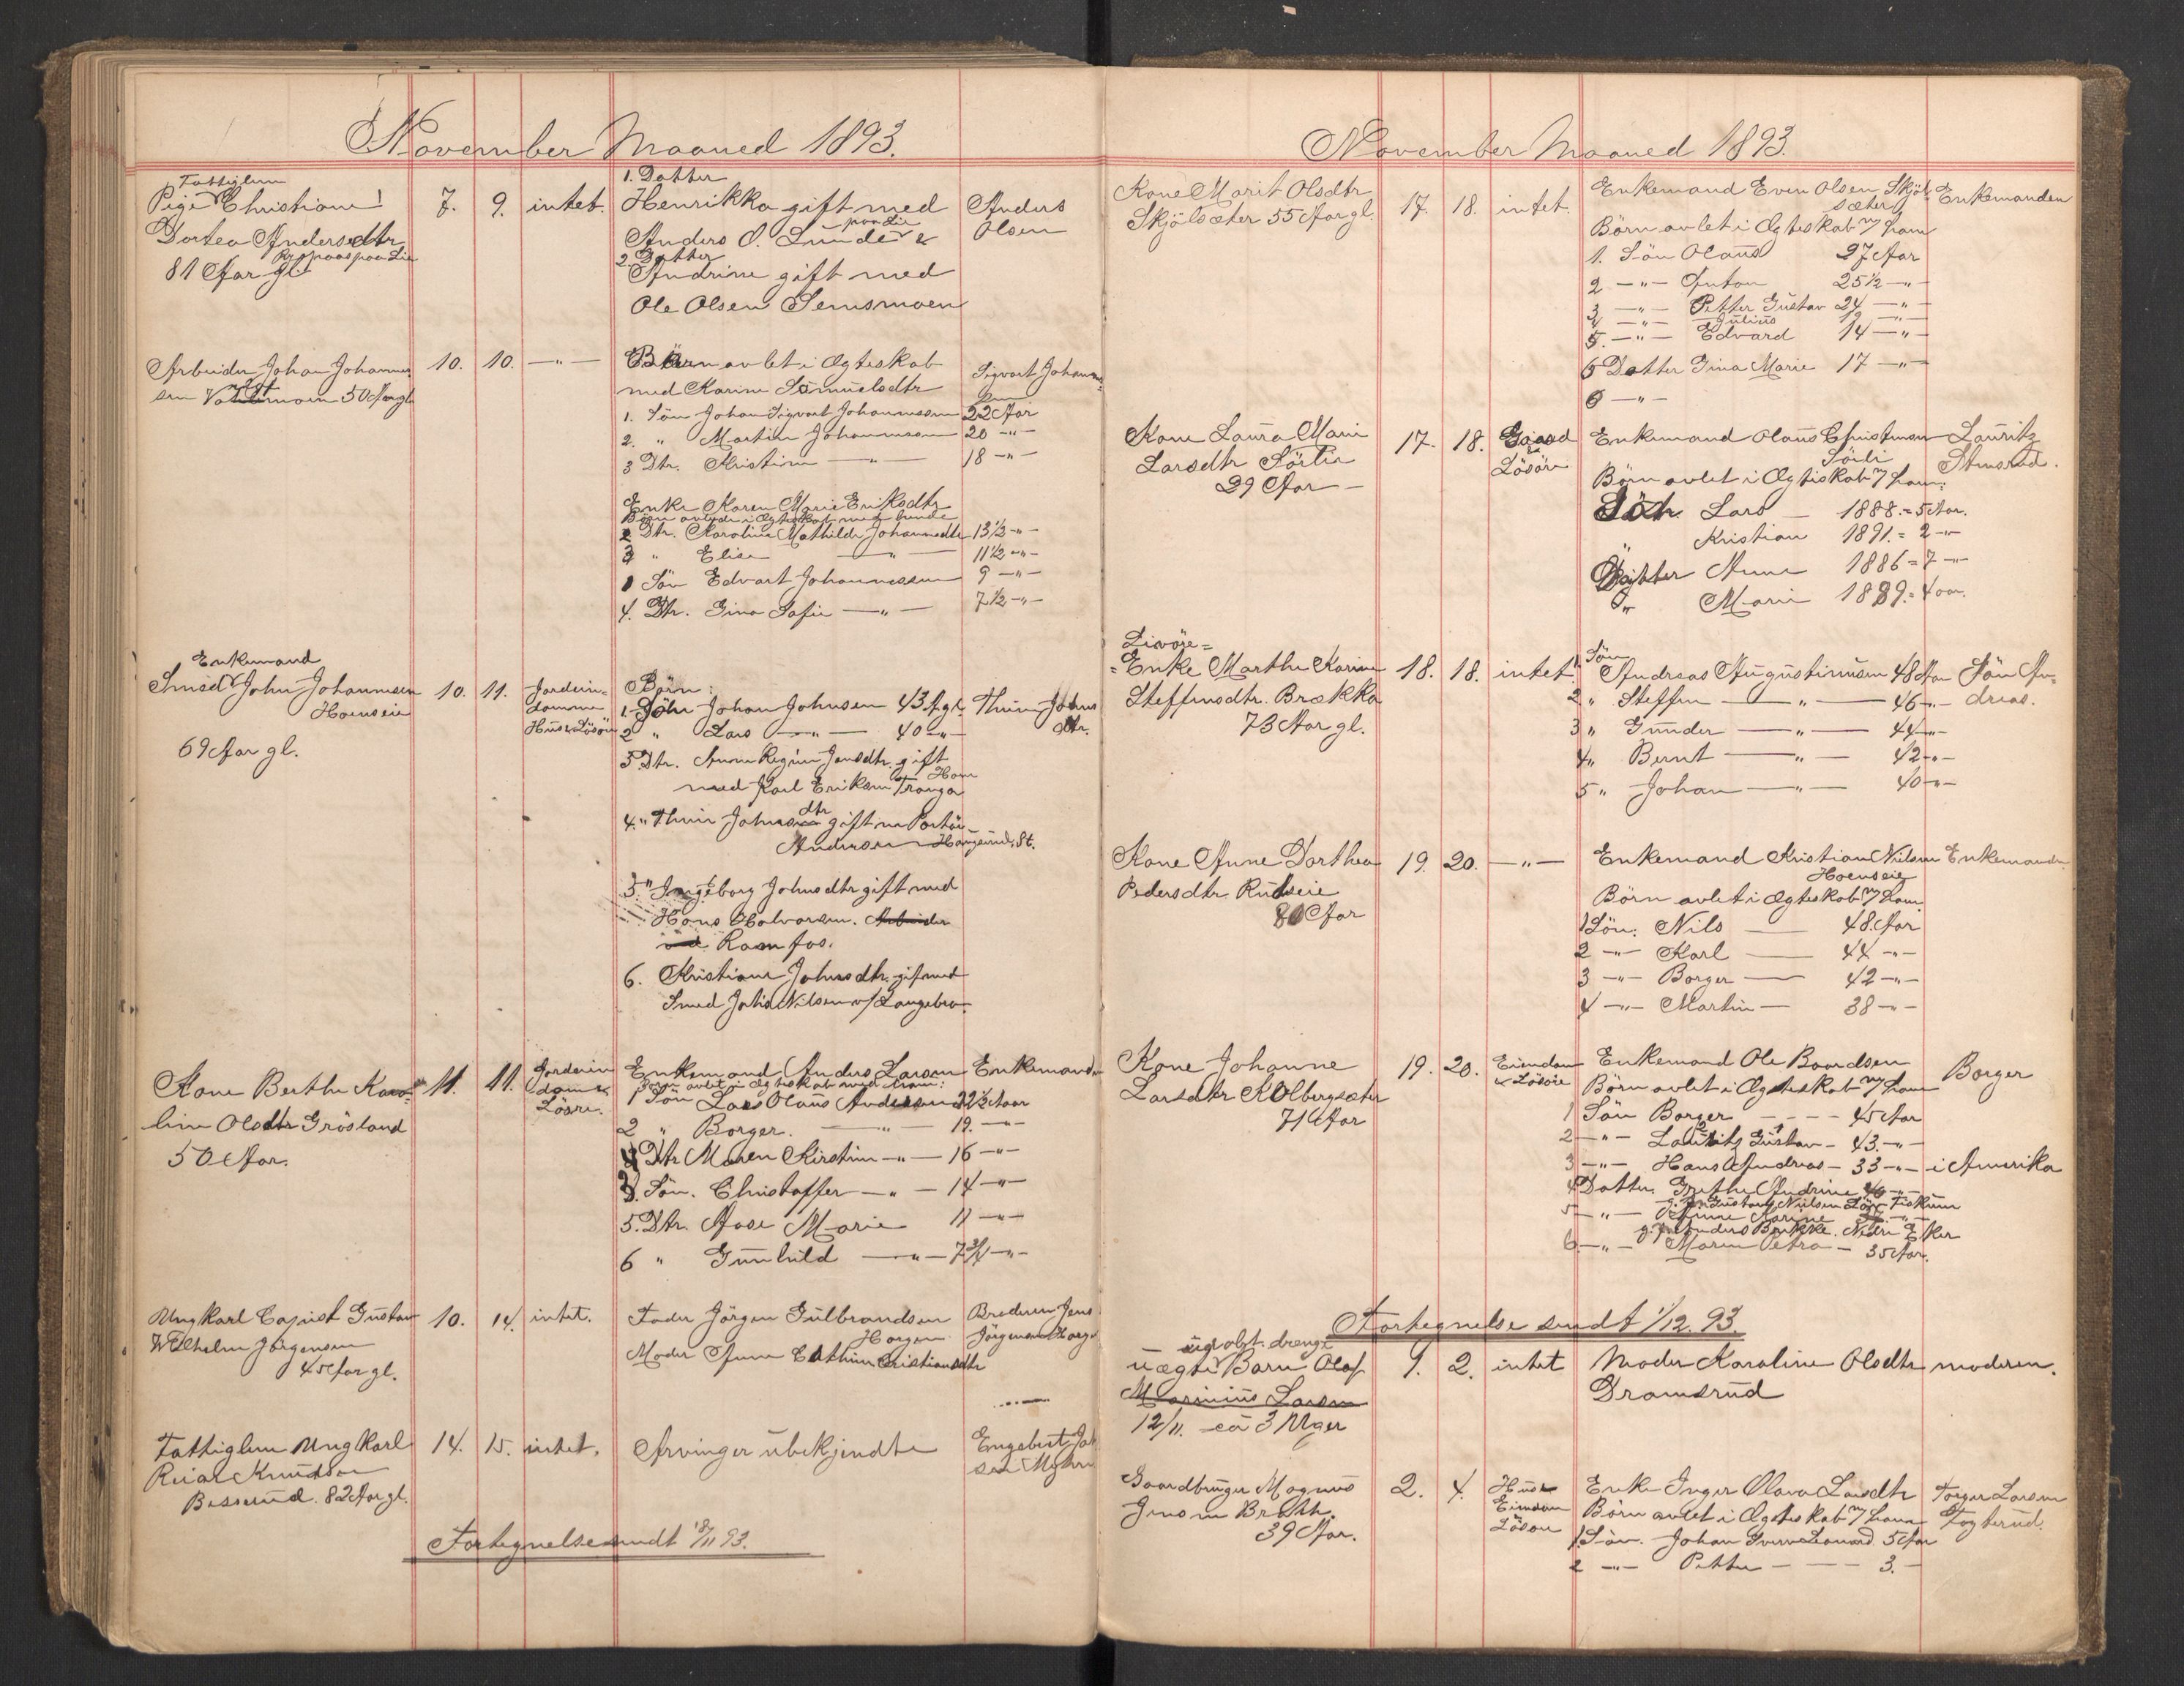 November Maaned 1893.
Fattiglem
Pige Christiane
Dortea Andersdtr
paa Lie
81 Aar gl
7. 9. intet.
1. Datter
Henrikka gift med
paa Lie
Anders O. Lunde &
2. Datter
Andrine gift med
Ole Olsen Semsmoen
Anders
Olsen
Arbeider Johan Johannes
sen 50 Aar gl
10. 10. —"—
Børn avlet i Ægteskab
med Karine Samuelsdtr
1. Søn Johan Sigvart Johannessen 22 Aar
2. " Martin Johannessen 20 —"—
3 Dtr. Kristine —"— 18 —"—
Sigvart Johannes
sen
Enke Karen Marie Eriksdtr
Børn avlede i Ægteskab med hende
2 Dtr. Karoline Mathilde Johannesdtr 13½ —"—
3 " Elise —"— 11½ —"—
1 Søn Edvart Johannessen 9 —"—
4. Dtr. Gina Sofie —"— 7½ —"—
Enkemand
Smed John Johannesen
Hoenseie
69 Aar gl.
10. 11.
Jordein-
domme
Hus & Løsøre
Børn:
1. Søn Johan Johnsen 43 A. gl.
2 " Lars —"— 40 —"—
3 Dtr. Anne Regine Jonsdtr. gift
med Karl Eriksen Tranga
Hoen
4. " Thine Johnsdtr gift m Portør
Andersen Haugsund. St.
5. " Ingeborg Johnsdtr gift med
Hans Halvorsen. Arbeider
ved Ramfos.
6. Kristiane Johnsdtr. gift med
Smed Johan Nilsen v/ Langebro.
Thine Johns
dtr.
Kone Berthe Karo-
line Olsdtr Gråsland
50 Aar.
11. 11.
Jordeien
dom &
Løsøre.
Enkemand Anders Larsen
Børn avlet i Ægteskab med ham:
1 Søn Lars Olaus Andersen 22½ Aar
2 " Borger. —"— 19. —"—
4 Dtr Maren Kirstine —"— 16 —"—
3. Søn. Christoffer —"— 14 —"—
5. Dtr. Aase Marie 11 —"—
6 " Gunhild —"— 7¾ —"—
Enkemanden
Ungkarl Copist Gustav
Wilhelm Jørgensen
45 Aar gl.
10. 14. intet.
Fader Jørgen Gulbrandsen
Horgen
Moder Anne Cathrine Cristiansdtr
Broderen Jens
Jørgensen Horgen
Fattiglem Ungkarl
Reiar Knudsen
Besserud. 82 Aar gl.
14. 15. intet.
Arvinger ubekjendte
Engebret Joh
sen Myhre
Fortegnelse sendt 18/11 93.
November Maaned 1893.
Kone Marit Olsdtr
Skjølsæter 55 Aar gl.
17. 18. intet
Enkemand Even Olsen Skjøl-
sæter
Børn avlet i Ægteskab m/ ham
1. Søn Olaus 27 Aar
2 —"— Anton 25½ —"—
3 —"— Petter Gustav 24 —"—
4 —"— Julius 19 —"—
5. —"— Edvard 14 —"—
6 Datter Gina Marie 17 —"—
6 —"—
Enkemanden
Kone Laura Marie
Larsdtr Sørlie
29 Aar —
17. 18.
Gaard
&
Løsøre
Enkemand Olaus Christensen
Sørli
Børn avlet i Ægteskab m/ ham:
Søn. Lars — 1888. = 5 Aar.
" Kristian 1891. = 2 —"—
Døtter Anne 1886 = 7 —"—
" Marie 1889. = 4 aar.
Lauritz
Stensrud.
Livøre =
= Enke Marthe Karine
Steffensdtr. Brække
73 Aar gl.
18. 18. intet
1. Søn
Andreas Augustinusen 48 Aar
2 " Steffen —"— 46 —"—
3 " Gunder —"— 44 —"—
4 " Bernt —"— 42 —"—
5 " Johan —"— 40 —"—
Søn An-
dreas.
Kone Anne Dorthea
Pedersdtr Rudseie
80 Aar
19. 20. —"—
Enkemand Kristian Nilsen
Hoenseie
Børn avlet i Ægteskab m/ ham.
1 Søn: Nils — 48. Aar
2 —"— Karl — 44 —"—
3 —"— Borger — 42 —"—
4 —"— Martin — 38 —"—
Enkemanden
Kone Johanne
Larsdtr Kolbergsæter
71 Aar
19. 20.
Eiendom
& Løsøre
Enkemand Ole Baardsen
Børn avlet i Ægteskab m/ ham
1 Søn Borger — — — 45 Aar
2 —"— Lauritz Gustav — 43. —"—
3 —"— Hans Andreas — 33 —"— i Amerika
4 Datter Grethe Andrine 40 —"—
g. m. Gustav Nilsen Fiskum
5 —"— Anne Karine
g. m. Anders Brække. Nedre Eker
6 —"— Maren Petra — 35 Aar.
Borger
Fortegnelse sendt 1/12. 93.
drenge
uægte Barn Olaf
Marinius Larsen
12/11. ca 3 Uger
1. 2. intet
Moder Karoline Olsdtr
Dramsrud
moderen.
Gaardbruger Magnus
Jensen Bråth.
39 Aar.
2. 4.
Hus &
Eiendom
Løsøre
Enke Inger Olava Larsdtr
Børn avlet i Ægteskab m/ ham
1. Søn. Johan Leonard. 5 Aar
2 —"— Petter — — — 3. —
Torger Larsen
Fogterud.